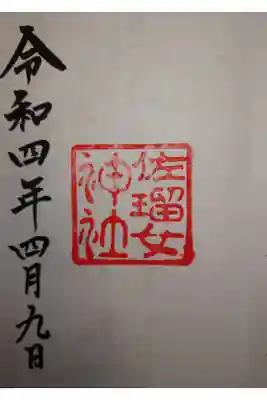 佐瑠女
神社
令和四年四月九日